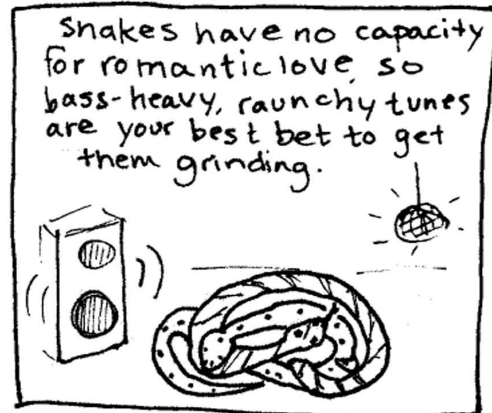 Snakes have no capacity
for romantic love, so
bass-heavy, raunchy tunes
are your best bet to get
them grinding.